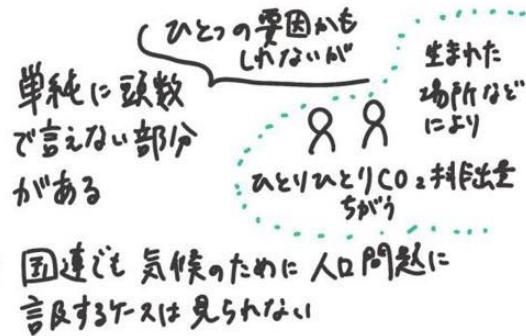 ひとつの要因かも
しれないが
単純に頭数
で言えない部分
がある
生まれた
場所など
により
ひとりひとりCO2排出量
ちがう
国連でも 気候のために 人口問題に
言及するケースは 見られない